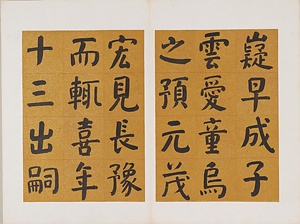 嶷早成子
雲愛童烏
之預元茂
宏見長豫
而輒喜年
十三出嗣